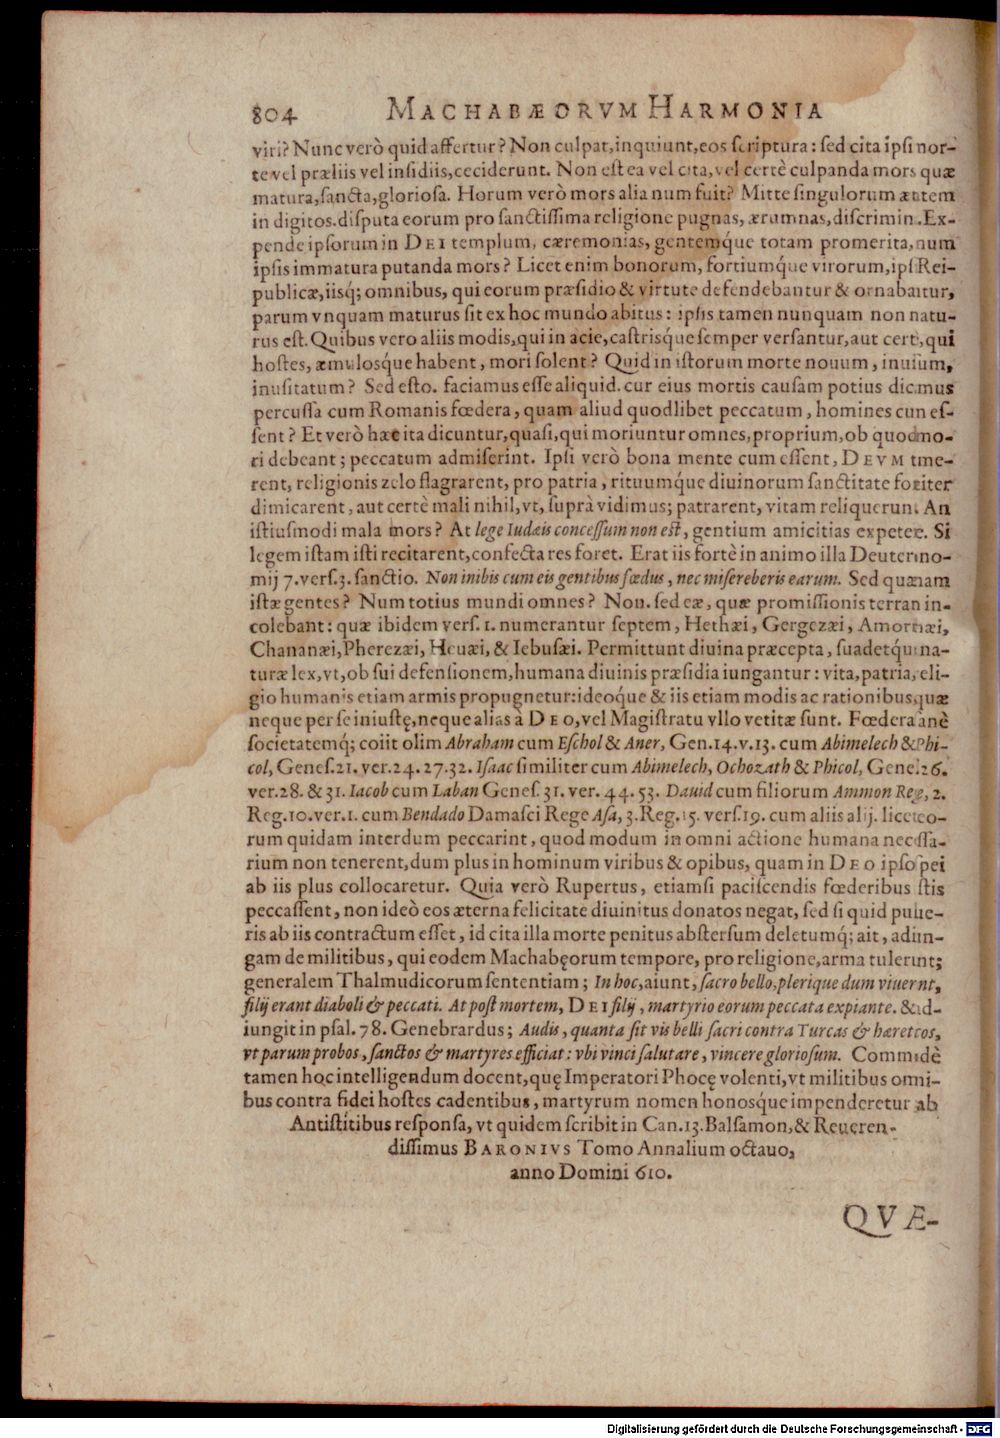 804 MACHABÆORVM HARMONIA
viri? Nunc verò quid affertur? Non culpat, inquiunt, eos scriptura: sed cita ipsi nor-
te vel præliis vel insidiis, ceciderunt. Non est ea vel cita, vel certè culpanda mors quæ
matura, sancta, gloriosa. Horum verò mors alia num fuit? Mitte singulorum ætatem
in digitos. disputa eorum pro sanctissima religione pugnas, ærumnas, discrimin. Ex-
pende ipsorum in DEI templum, cæremonias, gentemq́ue totam promerita, num
ipsis immatura putanda mors? Licet enim bonorum, fortiumq́ue virorum, ipsi Rei-
publicæ, iisq́; omnibus, qui eorum præsidio & virtute defendebantur & ornabantur,
parum vnquam maturus sit ex hoc mundo abitus: ipsis tamen nunquam non natu-
rus est. Quibus vero aliis modis, qui in acie, castrisq́ue semper versantur, aut certè, qui
hostes, æmulosq́ue habent, mori solent? Quid in istorum morte nouum, inuisum,
inusitatum? Sed esto. faciamus esse aliquid. cur eius mortis causam potius dicimus
percussa cum Romanis fœdera, quam aliud quodlibet peccatum, homines cum es-
sent? Et verò hæc ita dicuntur, quasi, qui moriuntur omnes, proprium, ob quod mo-
ri debeant; peccatum admiserint. Ipsi verò bona mente cum essent, DEVM time-
rent, religionis zelo flagrarent, pro patria, rituumq́ue diuinorum sanctitate fortiter
dimicarent, aut certè mali nihil, vt, suprà vidimus; patrarent, vitam reliquerunt. An
istiusmodi mala mors? At lege Iudæis concessum non est, gentium amicitias expetere. Si
legem istam isti recitarent, confecta res foret. Erat iis fortè in animo illa Deuterono-
mij 7. vers. 3. sanctio. Non inibis cum eis gentibus fœdus, nec misereberis earum. Sed quænam
istæ gentes? Num totius mundi omnes? Non. sed eæ, quæ promissionis terram in-
colebant: quæ ibidem vers. 1. numerantur septem, Hethæi, Gergezæi, Amorrhæi,
Chananæi, Pherezæi, Heuæi, & Iebusæi. Permittunt diuina præcepta, suadetq́ue na-
turæ lex, vt, ob sui defensionem, humana diuinis præsidia iungantur: vita, patria, reli-
gio humanis etiam armis propugnetur: ideoque & iis etiam modis ac rationibus, quæ
neque per se iniustę, neque alias à DEO, vel Magistratu vllo vetitæ sunt. Fœdera sanè
societatemq́; coiit olim Abraham cum Eschol & Aner, Gen. 14. v. 13. cum Abimelech & Phi-
col, Genes. 21. ver. 24. 27. 32. Isaac similiter cum Abimelech, Ochozath & Phicol, Genes. 26.
ver. 28. & 31. Iacob cum Laban Genes. 31. ver. 44. 53. Dauid cum filiorum Ammon Rege, 2.
Reg. 10. ver. 1. cum Bendado Damasci Rege Asa, 3. Reg. 15. vers. 19. cum aliis alij. licet eo-
rum quidam interdum peccarint, quod modum in omni actione humana necessa-
rium non tenerent, dum plus in hominum viribus & opibus, quam in DEO ipso spei
ab iis plus collocaretur. Quia verò Rupertus, etiamsi paciscendis fœderibus istis
peccassent, non ideò eos æterna felicitate diuinitus donatos negat, sed si quid pulue-
ris ab iis contractum esset, id cita illa morte penitus abstersum deletumq́; ait, adiun-
gam de militibus, qui eodem Machabęorum tempore, pro religione, arma tulerunt;
generalem Thalmudicorum sententiam; In hoc, aiunt, sacro bello, plerique dum viuerent,
filij erant diaboli & peccati. At post mortem, DEI filij, martyrio eorum peccata expiante. & ad-
iungit in psal. 78. Genebrardus; Audis, quanta sit vis belli sacri contra Turcas & hæreticos,
vt parum probos, sanctos & martyres efficiat: vbi vinci salutare, vincere gloriosum. Commodè
tamen hoc intelligendum docent, quę Imperatori Phocę volenti, vt militibus omni-
bus contra fidei hostes cadentibus, martyrum nomen honosque impenderetur ab
Antistitibus responsa, vt quidem scribit in Can. 13. Balsamon, & Reueren-
dissimus BARONIVS Tomo Annalium octauo,
anno Domini 610.
QVÆ-
Digitalisierung gefördert durch die Deutsche Forschungsgemeinschaft - DFG